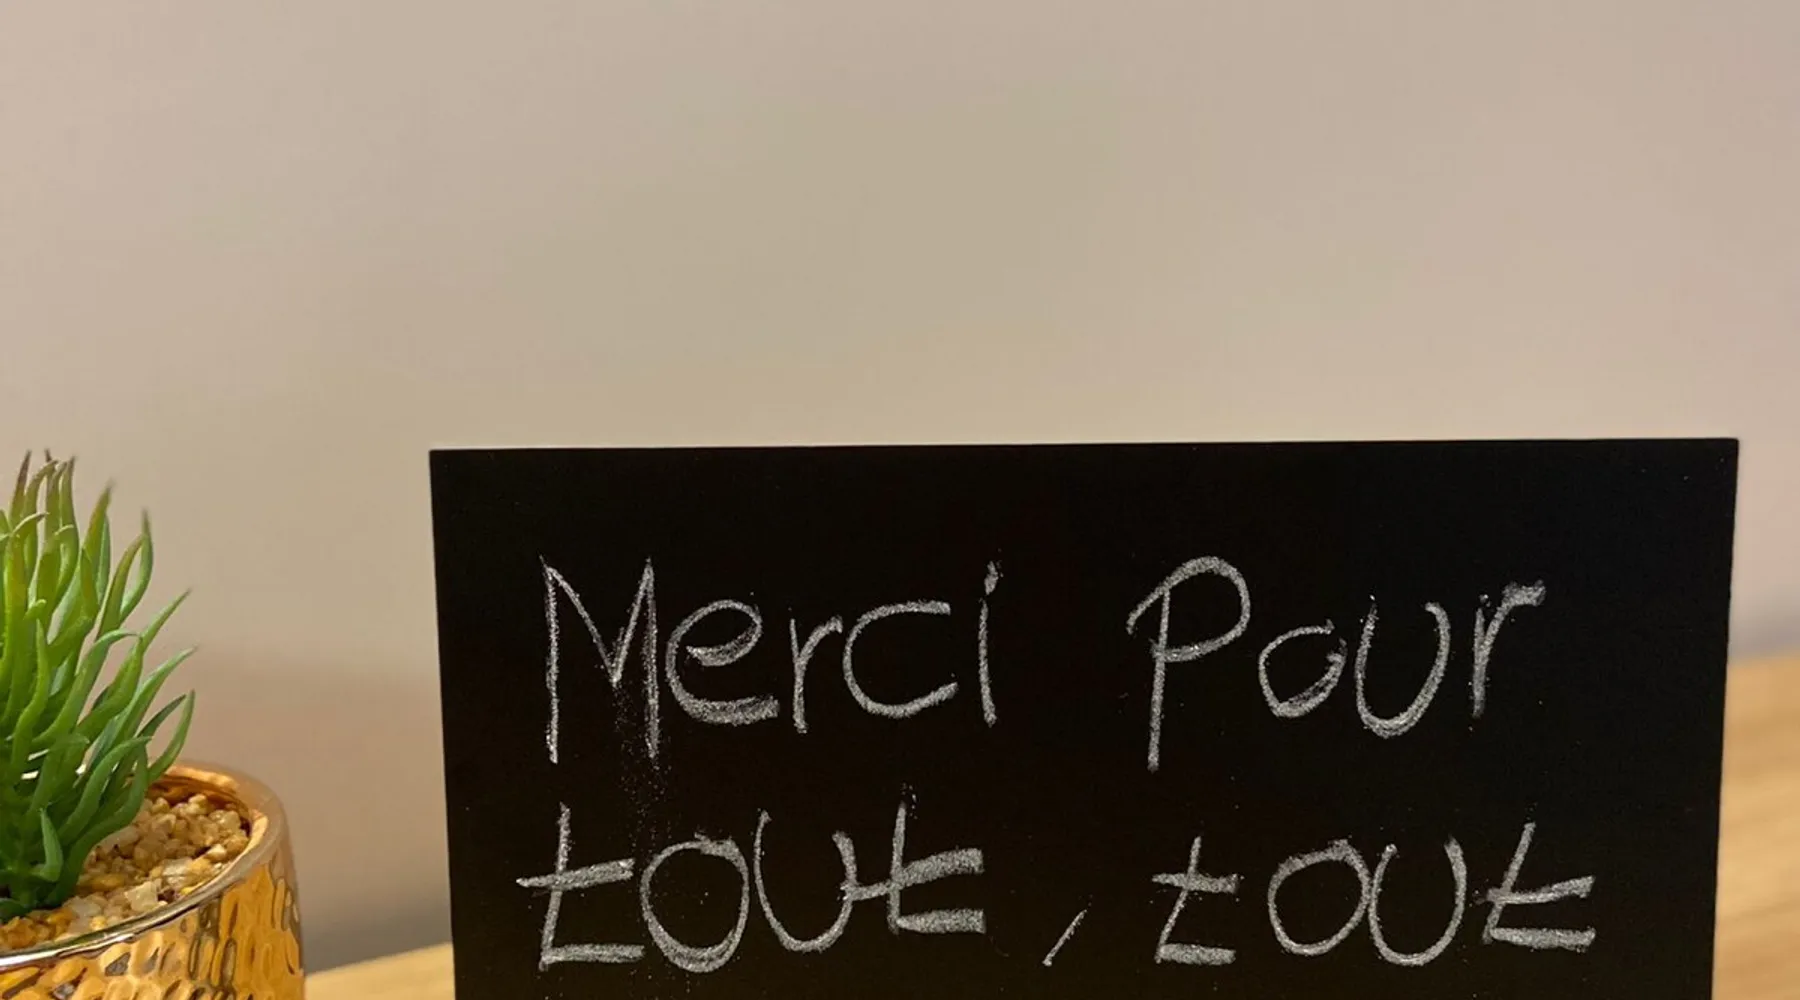 Merci Pour
tout, tout